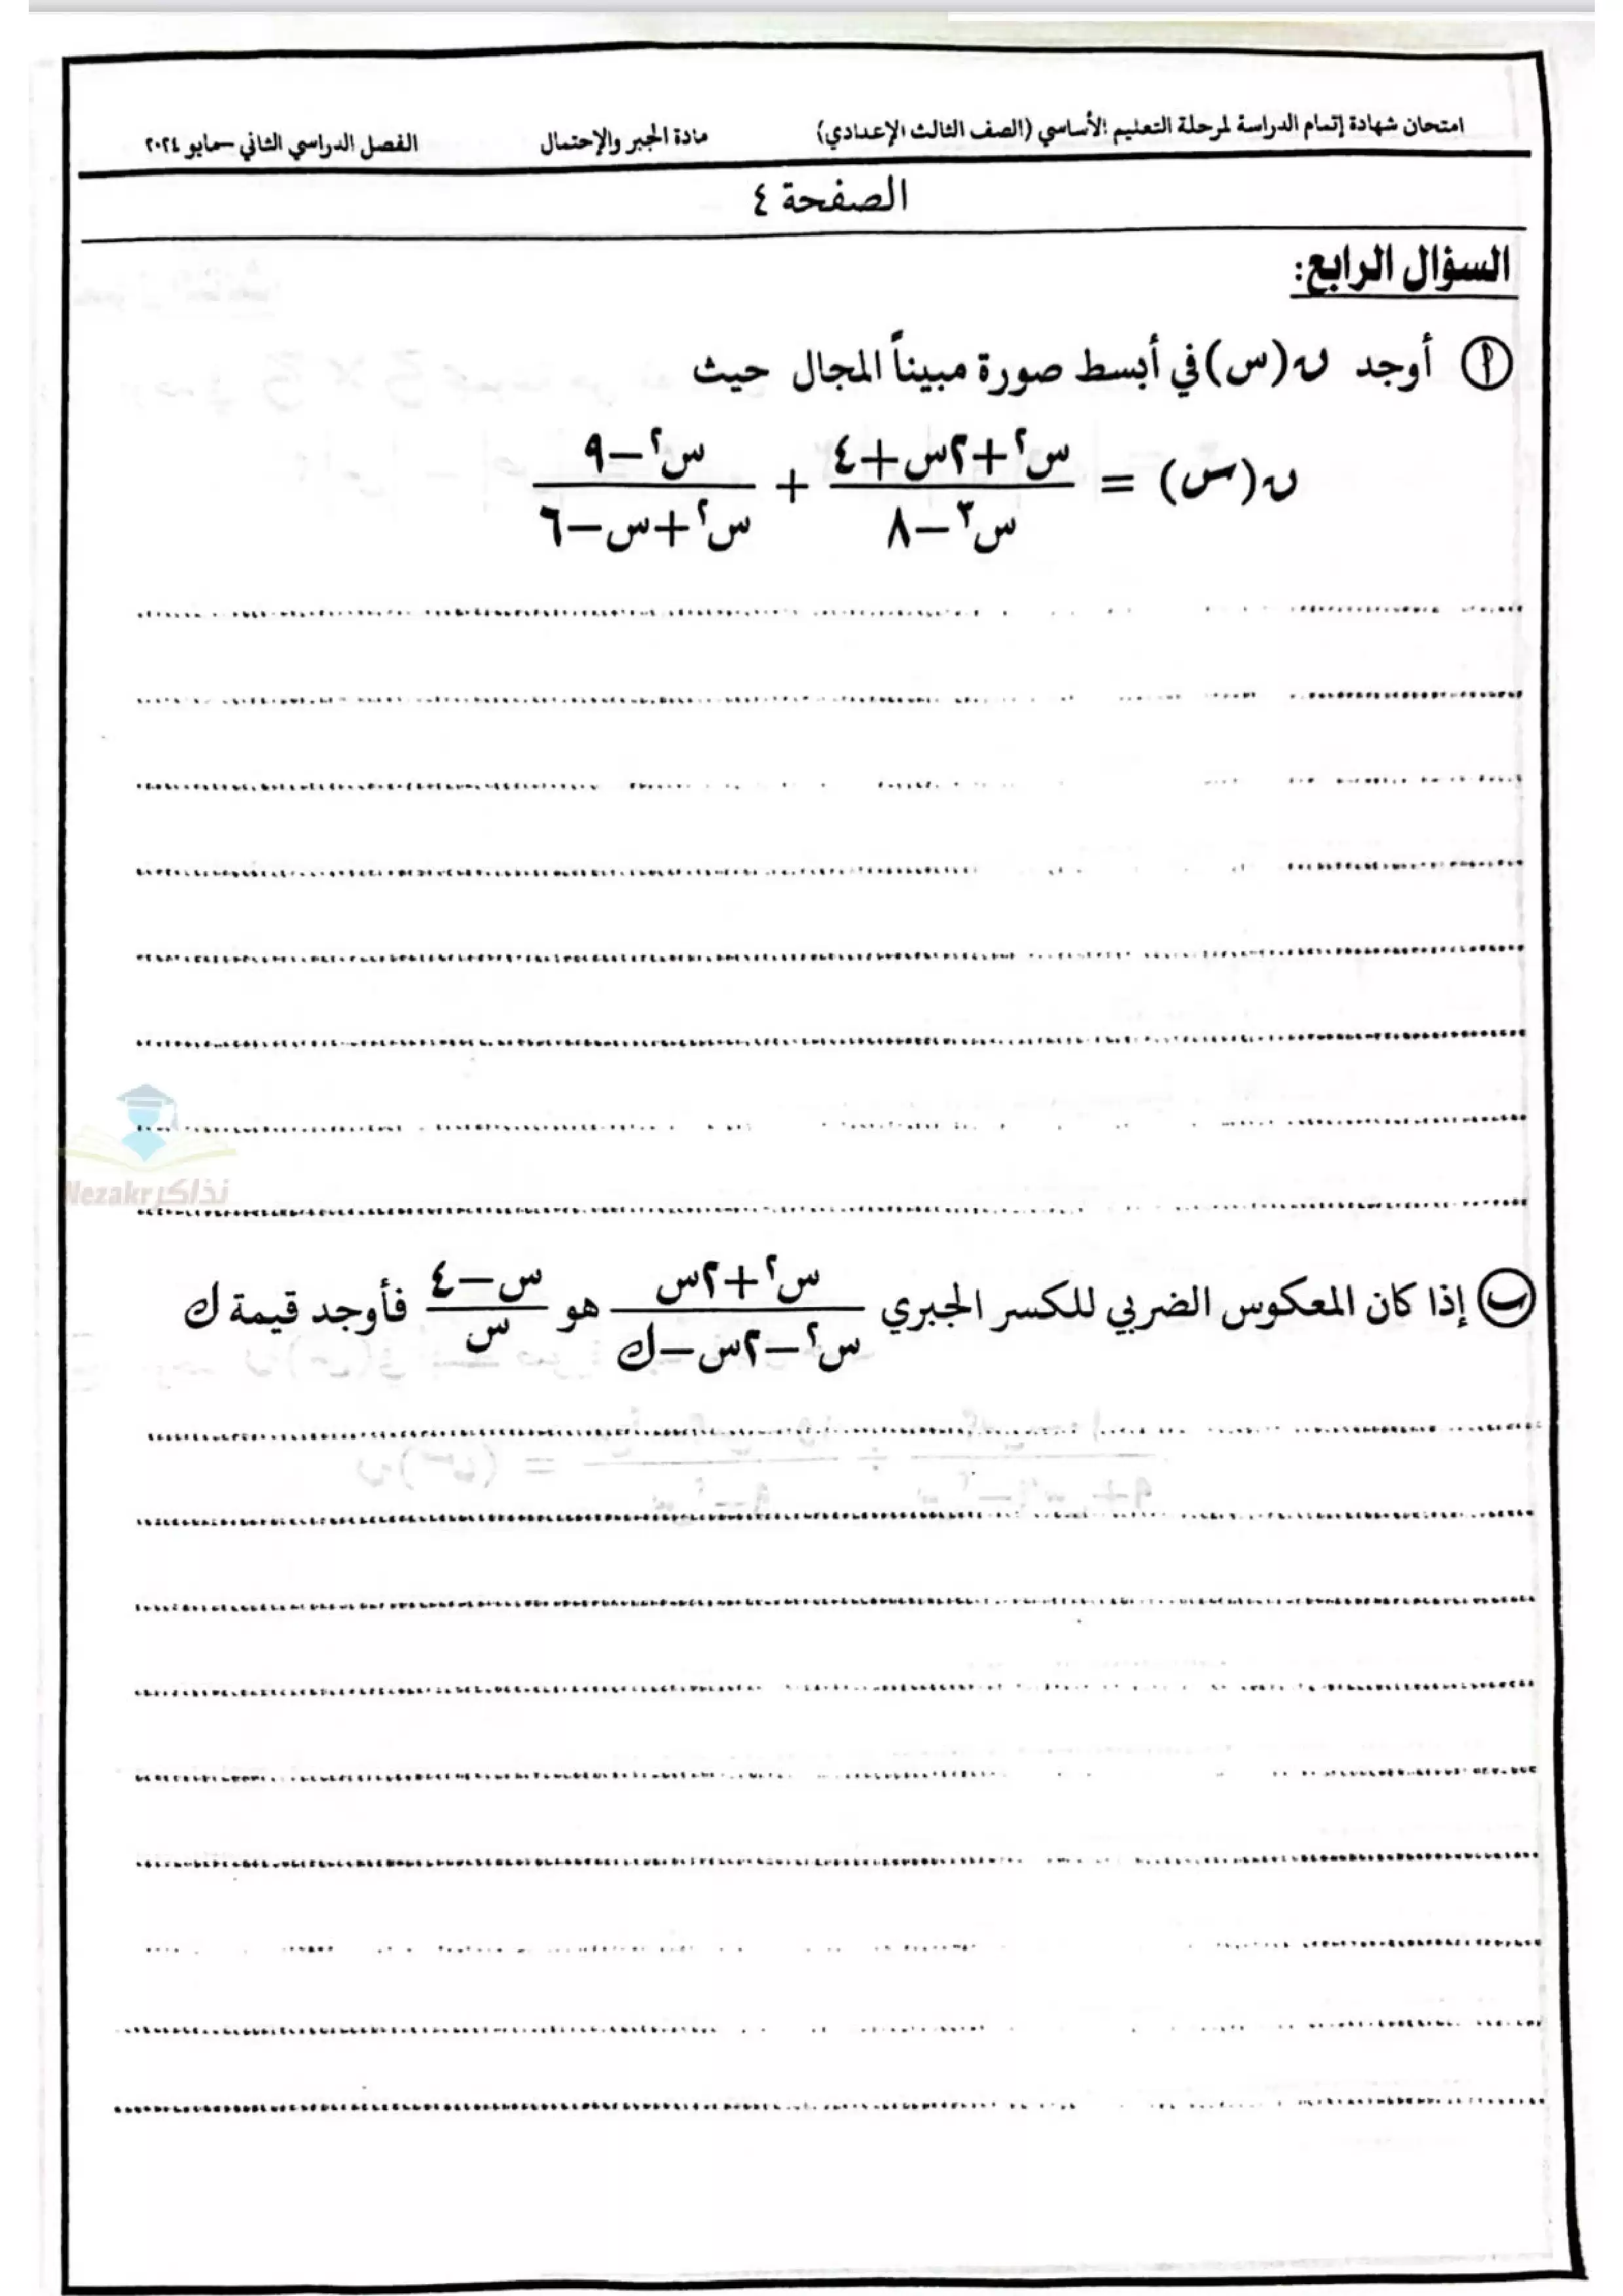 امتحان شهادة إتمام الدراسة لمرحلة التعليم الأساسي (الصف الثالث الإعدادي) مادة الجبر والإحتمال الفصل الدراسي الثاني – مايو ٢٠٢٤
الصفحة ٤
السؤال الرابع:
أ أوجد ن(س) في أبسط صورة مبيناً المجال حيث
ن(س) = (س٢+٢س+٤)/(س٣−٨) + (س٢−٩)/(س٢+س−٦)
Nezakr نذاكر
ب إذا كان المعكوس الضربي للكسر الجبري (س٢+٢س)/(س٢−٢س−ك) هو (س−٤)/س فأوجد قيمة ك